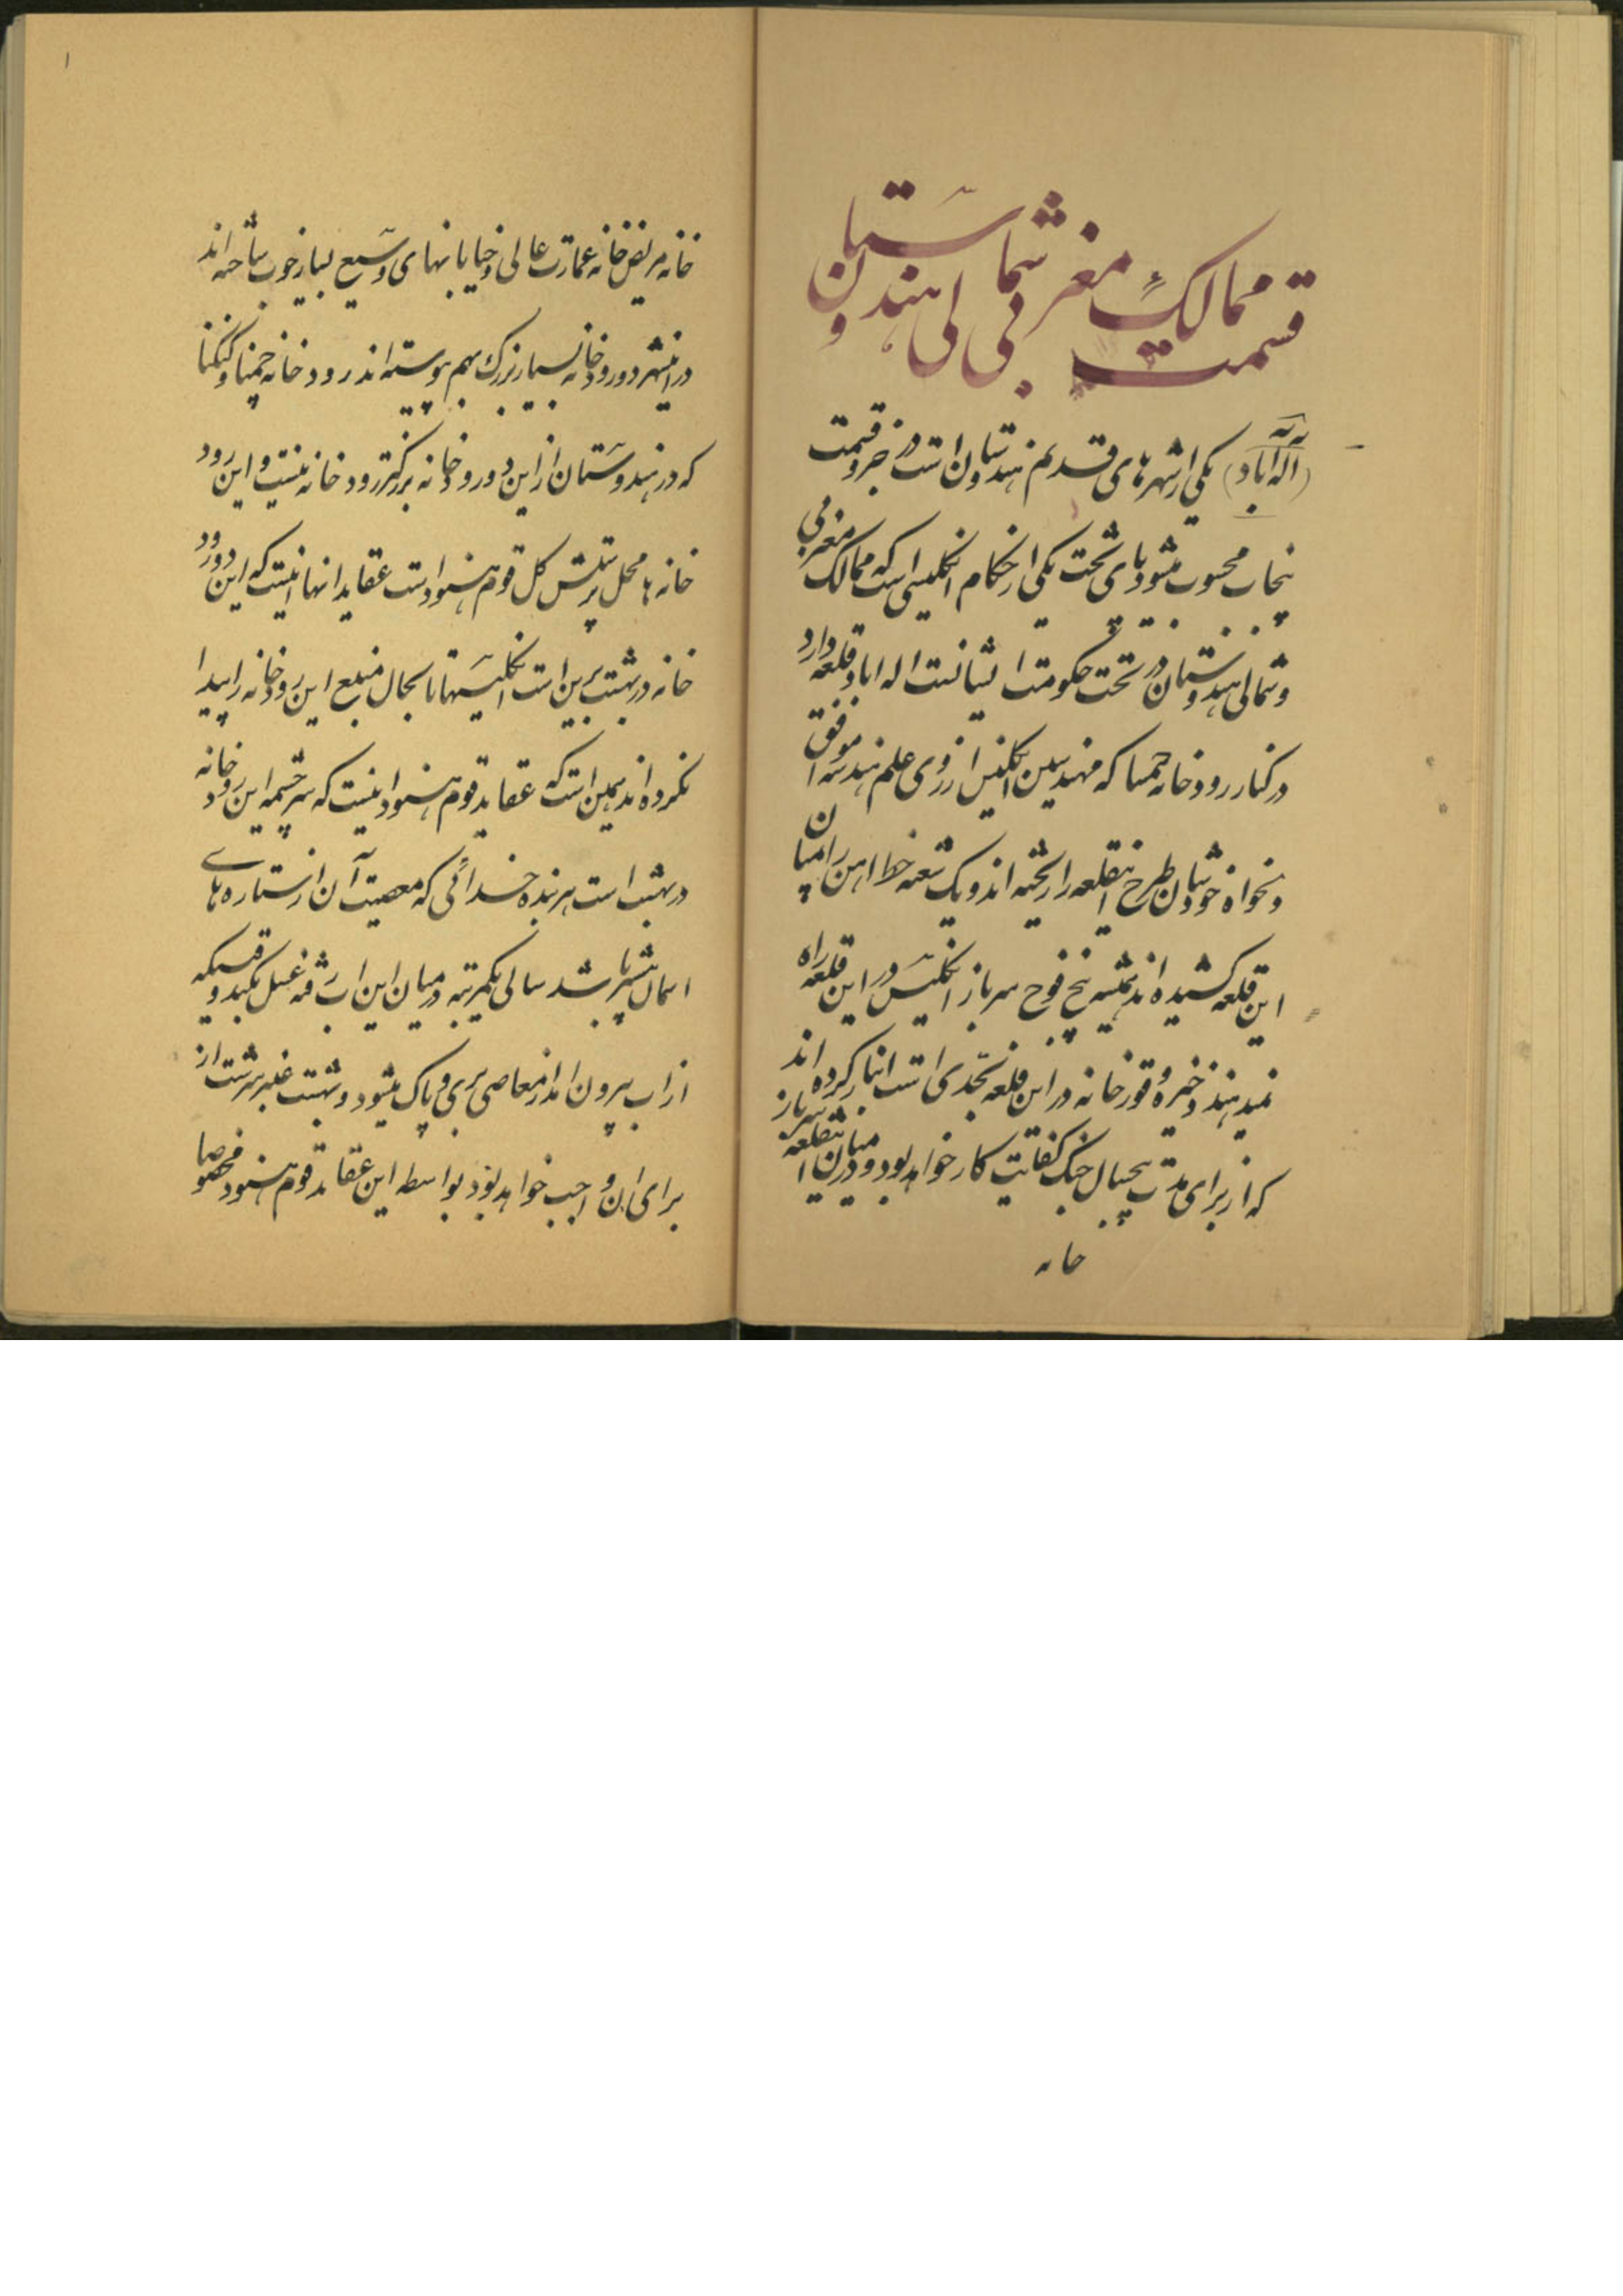 قسمت ممالک مغربی شمالی هندوستان
(اله آباد) یکی از شهرهای قدیم هندوستان است در جزو قسمت
پنجاب محسوب میشود پای تخت یکی از حکام انگلیسی است که ممالک مغربی
و شمالی هندوستان در تحت حکومت ایشانست اله اباد قلعه دارد
در کنار رودخانه جمنا که مهندسین انگلیس از روی علم هندسه موافق
دلخواه خودشان طرح اینقلعه را ریخته اند و یک شعبه خط اهن را میان
این قلعه کشیده اند همیشه پنج فوج سرباز انگلیس در این قلعه راه
میدهند ذخیره و قورخانه در این قلعه بحدی است انبار کرده اند
که از برای مدت پنجسال جنگ کفایت کار خواهد بود و در میان اینقلعه سرباز
خانه
۱
خانه مریض خانه عمارت عالی و خیابانهای وسیع بسیار خوب ساخته اند
در اینشهر دو رودخانه بسیار بزرگ بهم پیوسته اند رودخانه جمنا و کنکا
که در هندوستان از این دو رودخانه بزرکتر رودخانه نیست و این رود
خانه ها محل پرستش کل قوم هنود است عقاید انها اینست که این دو رود
خانه در بهشت برین است انگلیسها تا بحال منبع این رودخانه را پیدا
نکرده اند همین است که عقاید قوم هنود اینست که سر چشمه این رودخانه
در بهشت است هر بنده خدائی که معصیت آن از ستاره های
اسمان بیشتر باشد سالی یکمرتبه در میان این اب رفته غسل بکند وقتیکه
از اب بیرون امد از معاصی بری و پاک میشود و بهشت عنبر سرشت از
برای ان واجب خواهد بود بواسطه این عقاید قوم هنود مخصوصا